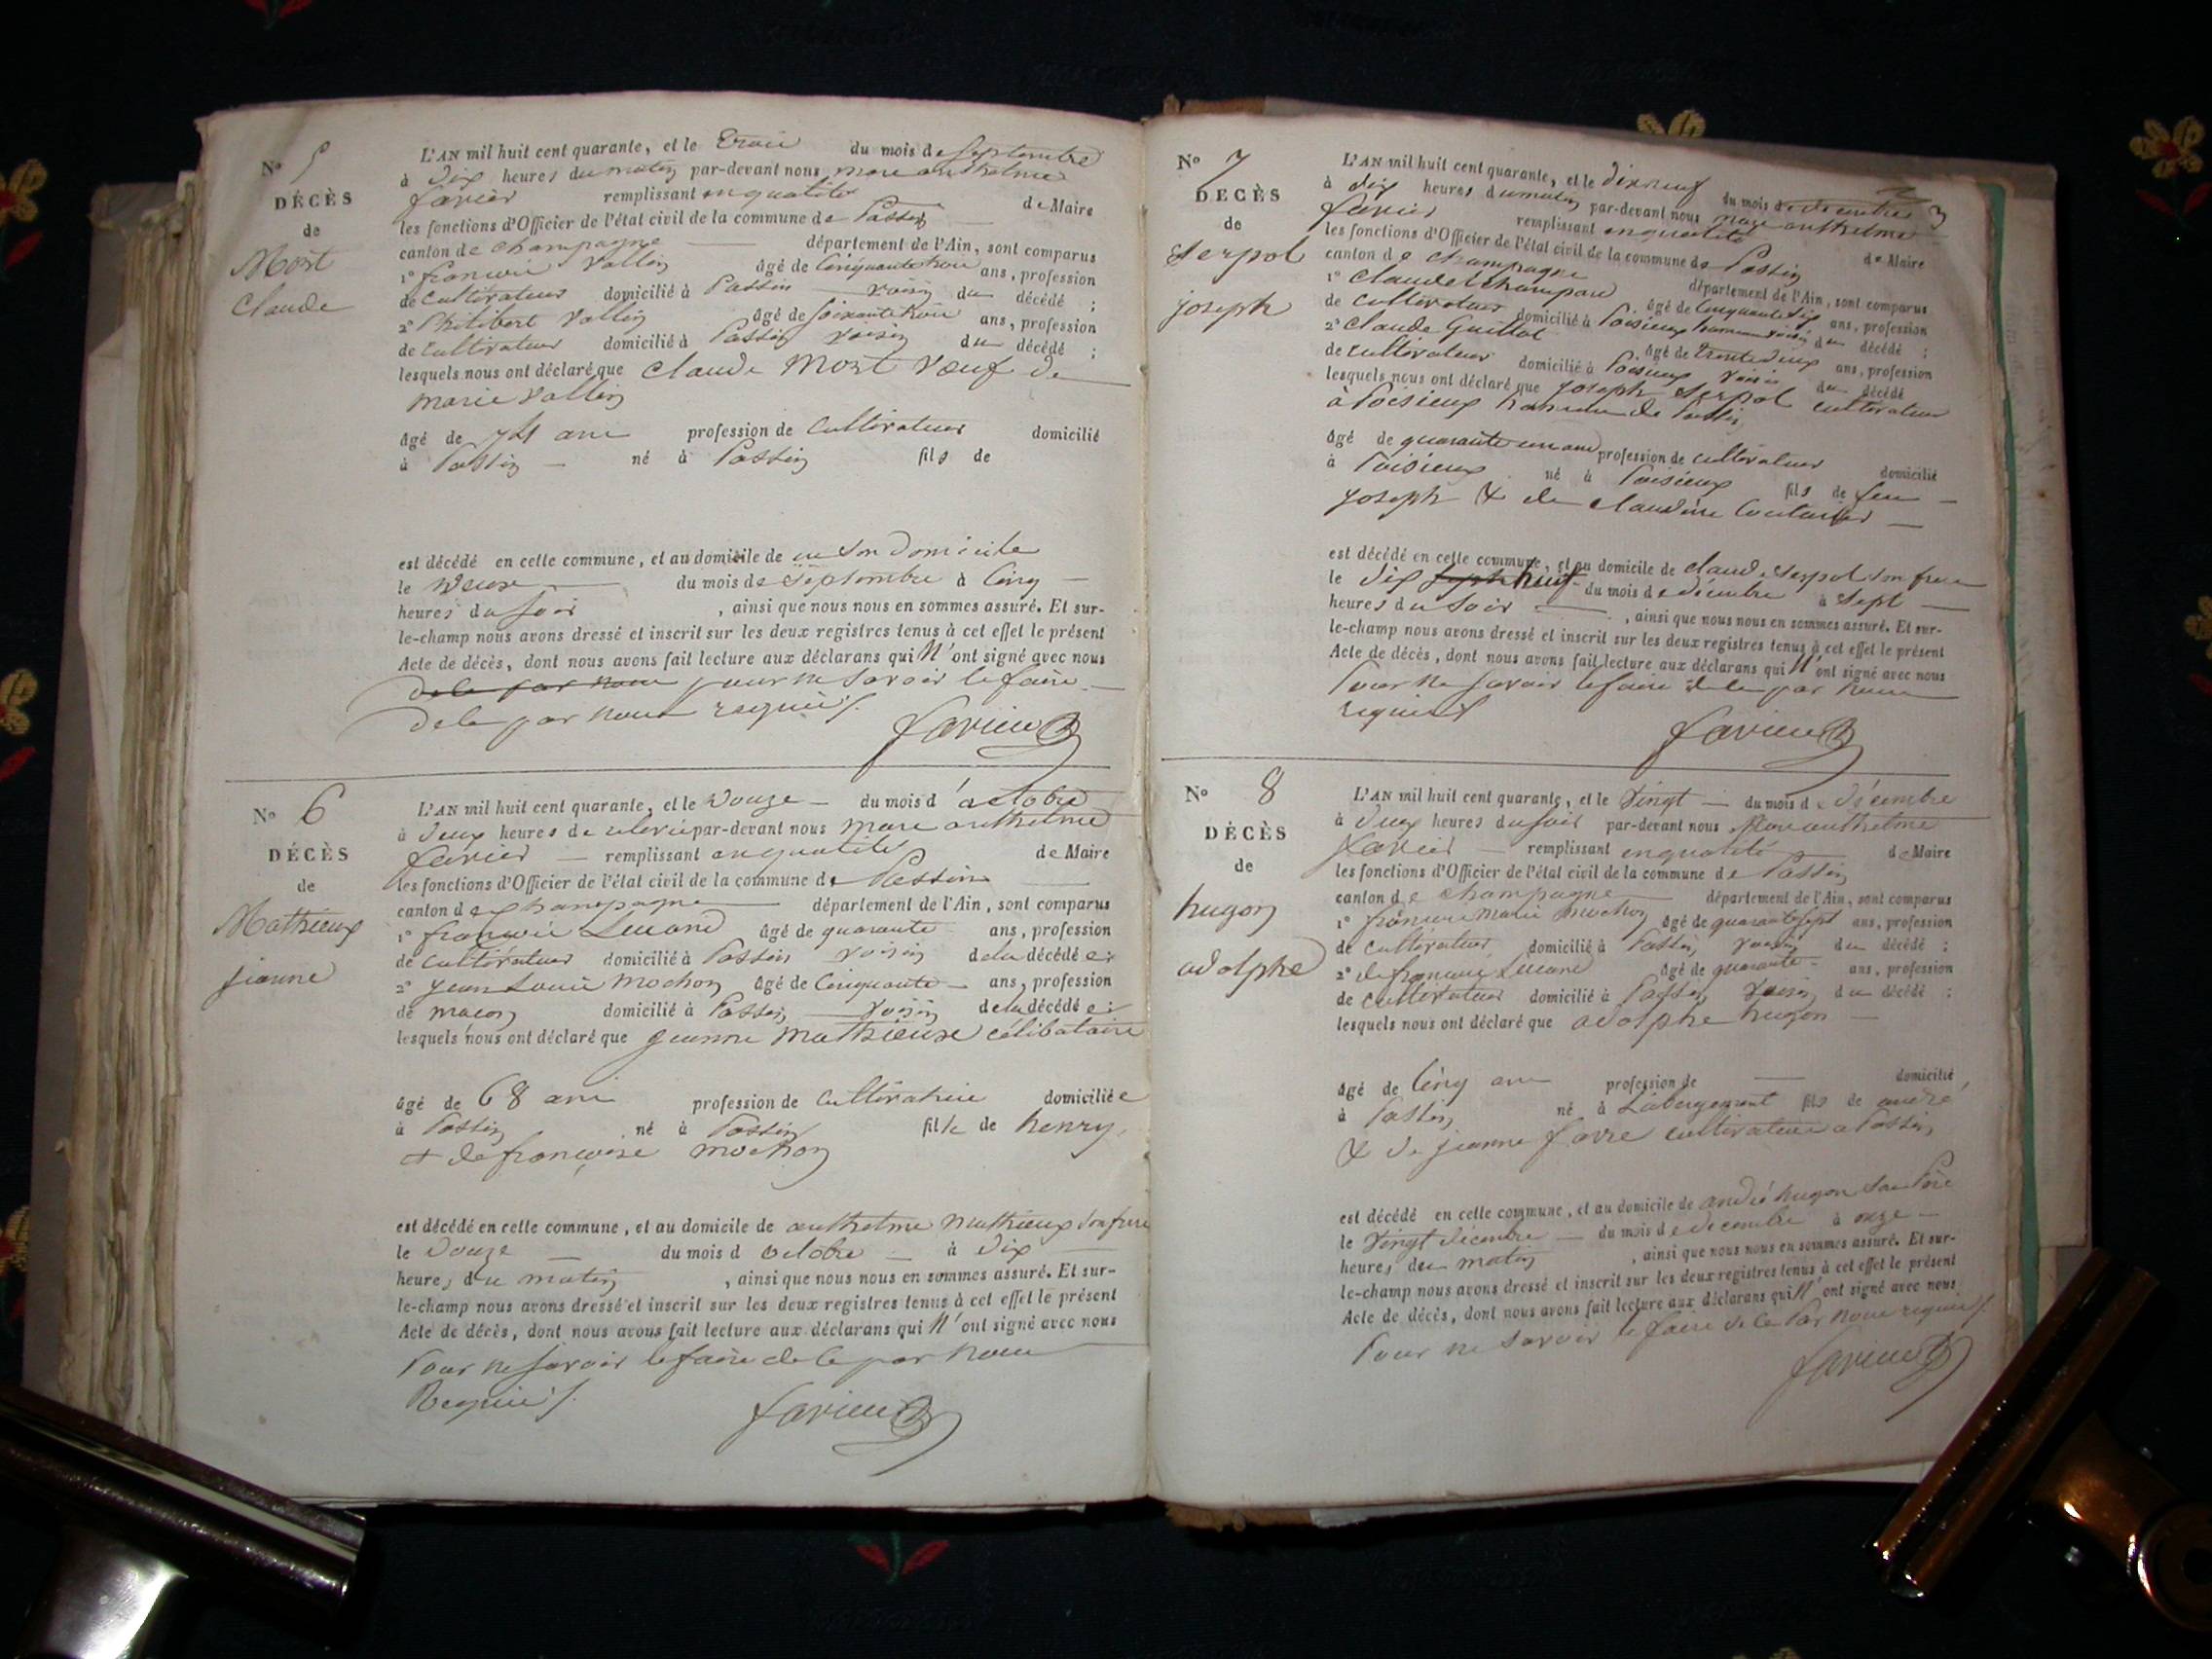 N° 5
DÉCÈS
de
Mort
Claude
L'AN mil huit cent quarante, et le trois du mois de septembre
à dix heures du matin par-devant nous marc anthelme
favier remplissant en qualité de Maire
les fonctions d'Officier de l'état civil de la commune de Passin
canton de champagne département de l'Ain, sont comparus
1° françois Vallin âgé de cinquante trois ans, profession
de cultivateur domicilié à Passin voisin du décédé ;
2° Philibert Vallin âgé de soixante trois ans, profession
de cultivateur domicilié à Passin voisin du décédé ;
lesquels nous ont déclaré que claude Mort veuf de
marie Vallin
âgé de ans profession de cultivateur domicilié
à Passin né à Passin fils de
est décédé en cette commune, et au domicile de en son domicile
le deux du mois de septembre à cinq
heures du soir , ainsi que nous nous en sommes assuré. Et sur-
le-champ nous avons dressé et inscrit sur les deux registres tenus à cet effet le présent
Acte de décès, dont nous avons fait lecture aux déclarans qui N'ont signé avec nous
de ce par nous pour ne savoir le faire
de ce par nous requis
favier
N° 6
DÉCÈS
de
Mathieux
jeanne
L'AN mil huit cent quarante, et le douze du mois d'octobre
à deux heures de par-devant nous marc anthelme
favier remplissant en qualité de Maire
les fonctions d'Officier de l'état civil de la commune de Passin
canton de champagne département de l'Ain, sont comparus
1° françois âgé de quarante ans, profession
de cultivateur domicilié à Passin voisin de la décédée ;
2° jean Louis mochon âgé de cinquante ans, profession
de maçon domicilié à Passin voisin de la décédée ;
lesquels nous ont déclaré que jeanne mathieux célibataire
âgé de 68 ans profession de cultivatrice domiciliée
à Passin né à Passin fille de henry
& de françoise mochon
est décédé en cette commune, et au domicile de anthelme mathieux son frère
le douze du mois d octobre à dix
heures du matin , ainsi que nous nous en sommes assuré. Et sur-
le-champ nous avons dressé et inscrit sur les deux registres tenus à cet effet le présent
Acte de décès, dont nous avons fait lecture aux déclarans qui N'ont signé avec nous
Pour ne savoir le faire de ce par nous
Requis
favier
3
N° 7
DECÈS
de
Serpol
joseph
L'AN mil huit cent quarante, et le dixneuf du mois de décembre
à dix heures du matin par-devant nous marc anthelme
favier remplissant en qualité de Maire
les fonctions d'Officier de l'état civil de la commune de Passin
canton de champagne département de l'Ain, sont comparus
1° claude âgé de cinquante six ans, profession
de cultivateur domicilié à Poisieux hameau voisin du décédé ;
2° claude Guillot âgé de trente deux ans, profession
de cultivateur domicilié à Poisieux voisin du décédé
lesquels nous ont déclaré que joseph Serpol cultivateur
à Poisieux hameau de Passin
âgé de quarante un ans profession de cultivateur domicilié
à Poisieux né à Poisieux fils de feu
joseph & de claudine
est décédé en cette commune, et au domicile de claude Serpol son frère
le dix sept huit du mois de décembre à sept
heures du soir , ainsi que nous nous en sommes assuré. Et sur-
le-champ nous avons dressé et inscrit sur les deux registres tenus à cet effet le présent
Acte de décès, dont nous avons fait lecture aux déclarans qui N'ont signé avec nous
Pour ne savoir le faire de ce par nous
requis
favier
N° 8
DÉCÈS
de
hugon
adolphe
L'AN mil huit cent quarante, et le vingt du mois de décembre
à deux heures du soir par-devant nous Marc anthelme
favier remplissant en qualité de Maire
les fonctions d'Officier de l'état civil de la commune de Passin
canton de champagne département de l'Ain, sont comparus
1° françois marie mochon âgé de quarante sept ans, profession
de cultivateur domicilié à Passin voisin du décédé ;
2° françois âgé de quarante ans, profession
de cultivateur domicilié à Passin voisin du décédé ;
lesquels nous ont déclaré que adolphe hugon
âgé de cinq ans profession de domicilié
à Passin né à Labergement fils de andré
& de jeanne favre cultivateurs à Passin
est décédé en cette commune, et au domicile de andré hugon son Père
le vingt décembre du mois de décembre à onze
heures du matin , ainsi que nous nous en sommes assuré. Et sur-
le-champ nous avons dressé et inscrit sur les deux registres tenus à cet effet le présent
Acte de décès, dont nous avons fait lecture aux déclarans qui N'ont signé avec nous
Pour ne savoir le faire de ce Par nous requis
favier